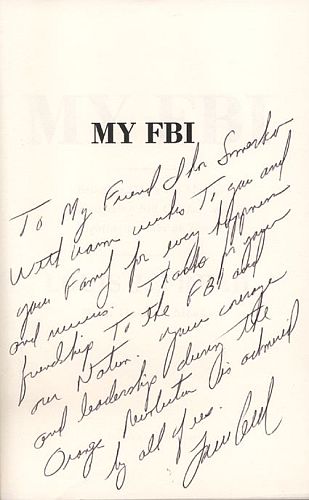 MY FBI
To My Friend Ihor Smeshko
With warm wishes To you and
your Family for every happiness
and success. Thanks for your
friendship To the FBI and
our Nation. Your courage
and leadership during the
Orange Revolution is admired
by all of us.